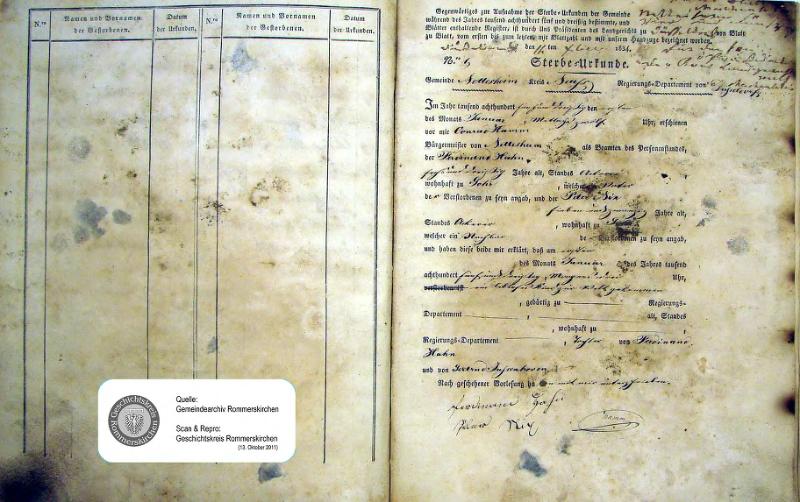 N.ro
Namen und Vornamen
der Gestorbenen.
Datum
der Urkunden.
N.ro
Namen und Vornamen
der Gestorbenen.
Datum
der Urkunden.
Gegenwärtiges zur Aufnahme der Sterbe-Urkunden der Gemeinde
während des Jahres tausend achthundert fünf und dreißig bestimmte, und
Blätter enthaltende Register, ist durch Uns Präsidenten des Landgerichts zu
von Blatt
zu Blatt, vom ersten bis zum letzten mit Blattzahl und mit unserm Handzuge bezeichnet worden.
1834.
Nro 1
Sterbe-Urkunde.
Gemeinde Nettesheim Kreis Neuß Regierungs-Departement von Düsseldorf
Im Jahr tausend achthundert fünf und dreißig den ersten
des Monats Januar Mittags zwölf Uhr, erschienen
vor mir Conrad Hamm
Bürgermeister von Nettesheim als Beamten des Personenstandes,
der Ferdinand Hahn
sechs und dreißig Jahre alt, Standes Ackerer
wohnhaft zu , welcher Vater
der Verstorbenen zu seyn angab, und der Peter Nix
sieben und zwanzig Jahre alt,
Standes Ackerer , wohnhaft zu
welcher ein Nachbar de Verstorbenen zu seyn angab,
und haben diese beide mir erklärt, daß am ersten
des Monats Januar des Jahres tausend
achthundert fünf und dreißig Morgens drei Uhr,
verstorben ist ein lebloses Kind zur Welt gekommen
, gebürtig zu Regierungs-
Departement , alt, Standes
, wohnhaft zu
Regierungs-Departement , Tochter von Ferdinand
Hahn
und von Gertrud
Nach geschehener Vorlesung ha ben mit mir unterschrieben.
Ferdinand Hahn
Peter Nix
Hamm
Geschichtskreis
Rommerskirchen
Quelle:
Gemeindearchiv Rommerskirchen
Scan & Repro:
Geschichtskreis Rommerskirchen
(13. Oktober 2011)